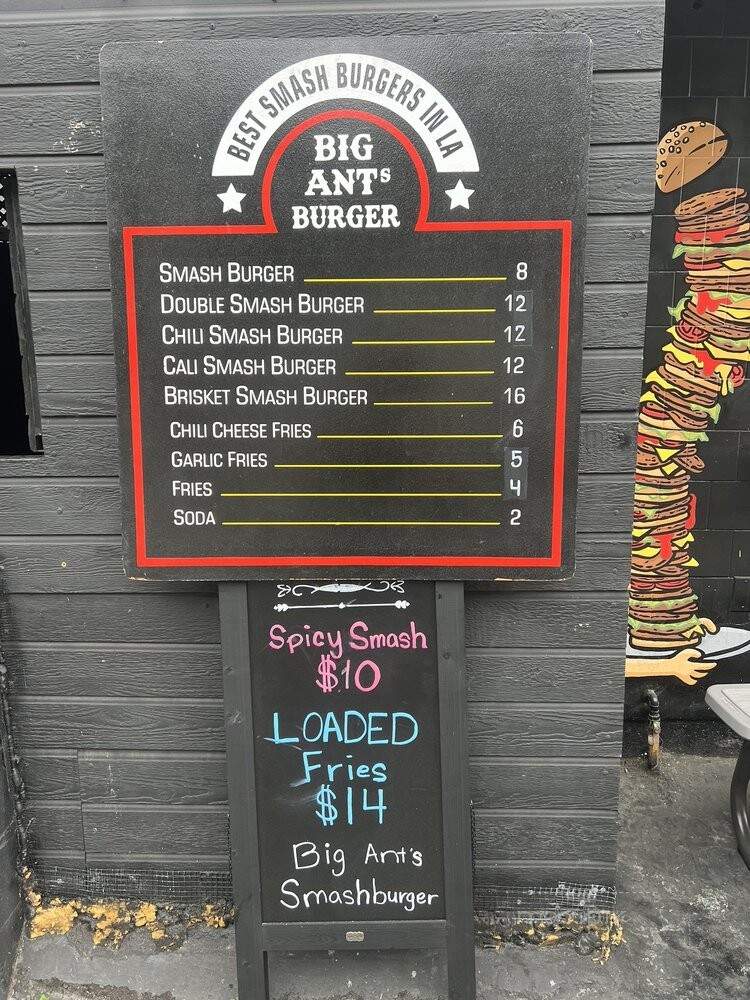 BEST SMASH BURGERS IN LA
BIG
ANTS
BURGER
SMASH BURGER 8
DOUBLE SMASH BURGER 12
CHILI SMASH BURGER 12
CALI SMASH BURGER 12
BRISKET SMASH BURGER 16
CHILI CHEESE FRIES 6
GARLIC FRIES 5
FRIES 4
SODA 2
Spicy Smash
$10
LOADED
Fries
$14
Big Ant's
Smashburger